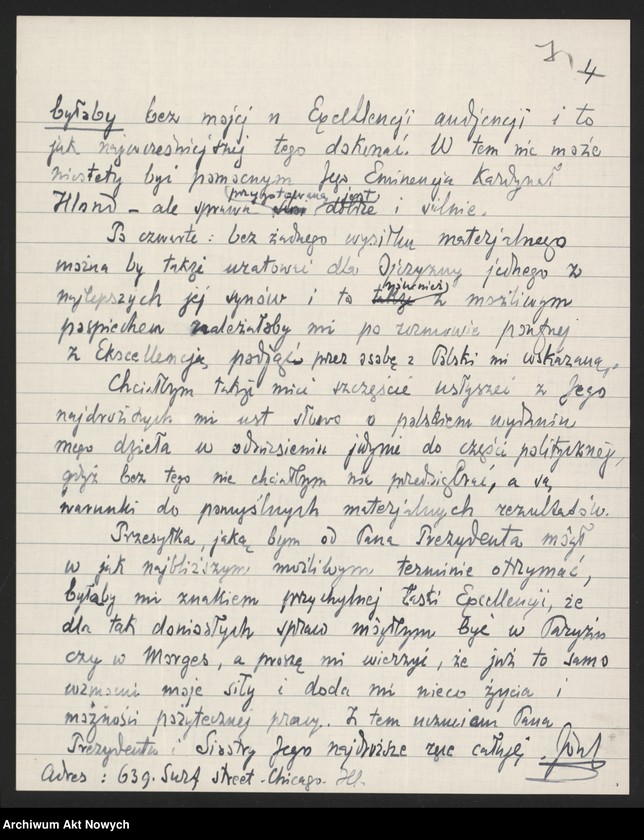 4
byłaby bez mojej u Excellencji audjencji i to
jak najwcześniejszej tego dokonać. W tem nie może
niestety być pomocnym Jego Eminencja Kardynał
przygotowana jest
Hlond – ale sprawa dobrze i silnie.
Po czwarte: bez żadnego wysiłku materjalnego
można by także uratować dla Ojczyzny jednego z
również
najlepszych jej synów i to także z możliwym
pośpiechem należałoby mi po rozmowie poufnej
z Ekscellencją, podjąć przez osobę z Polski mi wskazaną.
Chciałbym także mieć szczęście usłyszeć z Jego
najdroższych mi ust słowo o polskiem wydaniu
mego dzieła w odniesieniu jedynie do części politycznej,
gdyż bez tego nie chciałbym nic przedsiębrać, a są
warunki do pomyślnych materjalnych rezultatów.
Przesyłka, jaką bym od Pana Prezydenta mógł
w jak najbliższym możliwym terminie otrzymać,
byłaby mi znakiem przychylnej łaski Excellencji, że
dla tak doniosłych spraw mógłbym być w Paryżu
czy w Morges, a proszę mi wierzyć, że już to samo
wzmocni moje siły i doda mi nieco życia i
możności pożytecznej pracy. Z tem uczuciem Pana
Prezydenta i Siostry Jego najdroższe ręce całuję
Adres: 639. Surf street - Chicago Ill.
Archiwum Akt Nowych